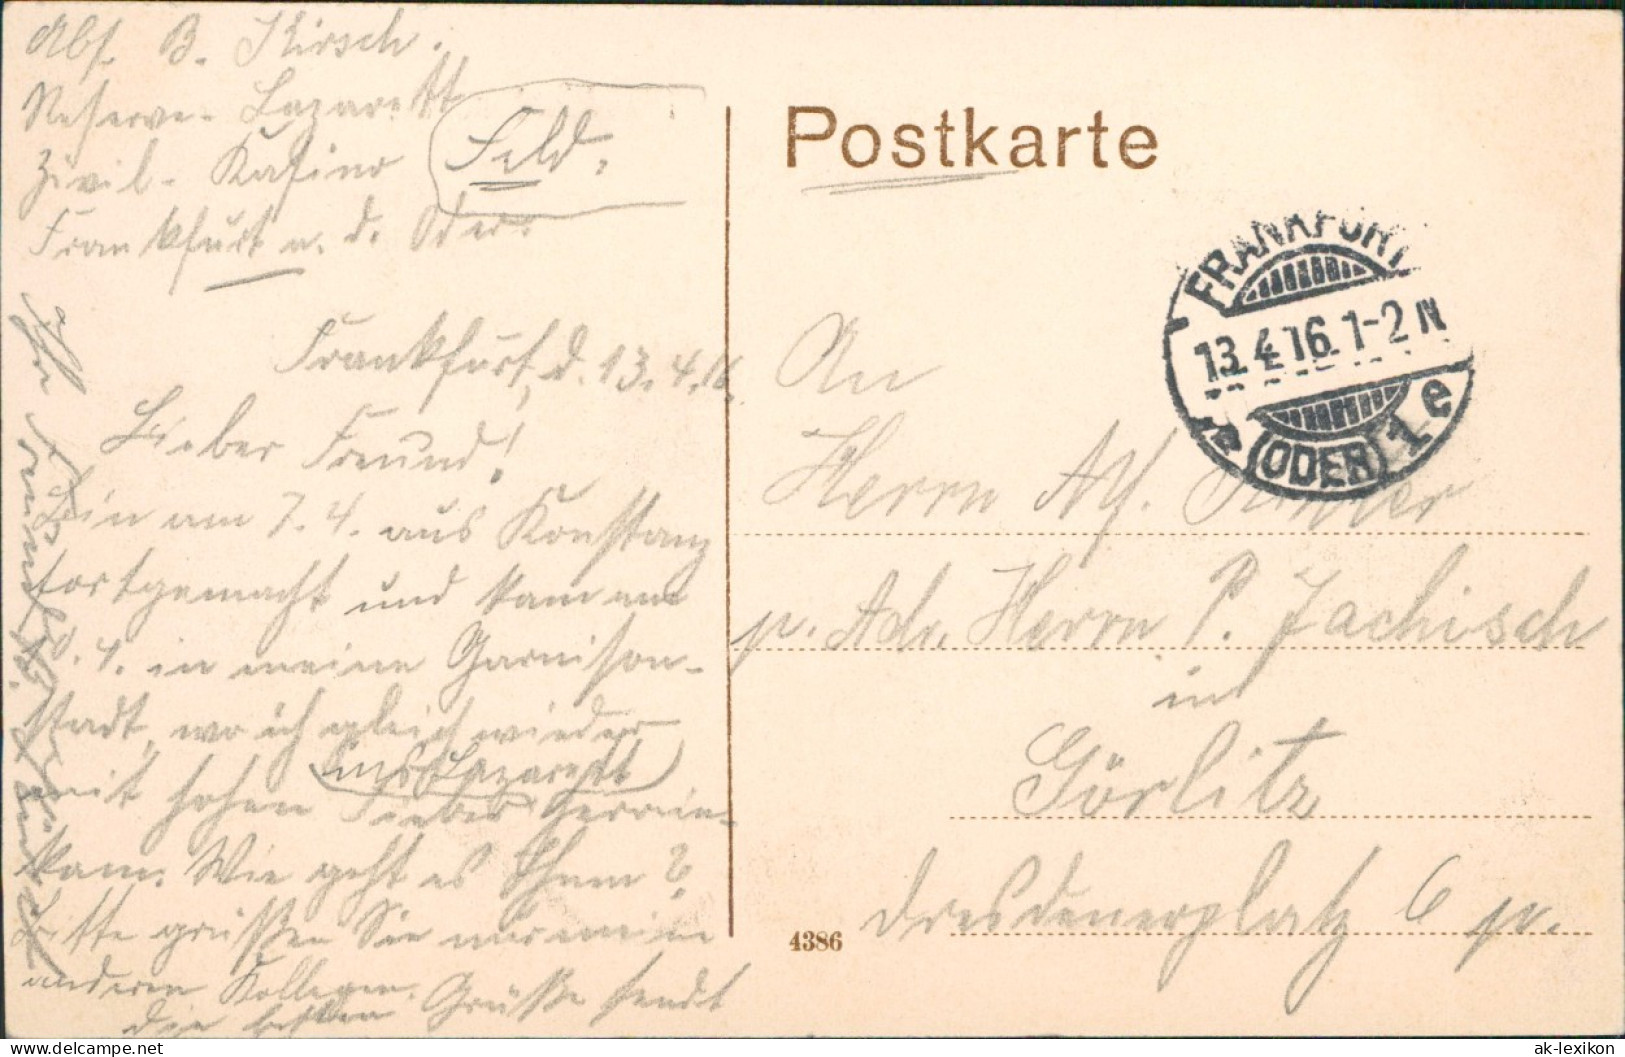 Abs. B. Kirsch.
Reserve-Lazarett
Zivil-Kasino
Frankfurt a. d. Oder.
Feld-
Postkarte
FRANKFURT
13.4.16.1-2N
(ODER) 1 e
Frankfurt, d. 13.4.16.
Lieber Freund!
Bin am 7.4. aus Konstanz
fortgemacht und kam am
4. in meine Garnison-
stadt, wo ich gleich wieder
ins Lazarett
mit hohen Fieber herein-
kam. Wie geht es Ihnen?
Bitte grüßen Sie mir meine
anderen Kollegen. Grüße sendt
die besten
Ihr Freund
An
Herrn Alf.
p. Adr. Herrn P. Jachisch
in
Görlitz
Dresdenerplatz 6 pr.
4386
delcampe.net
ak-lexikon